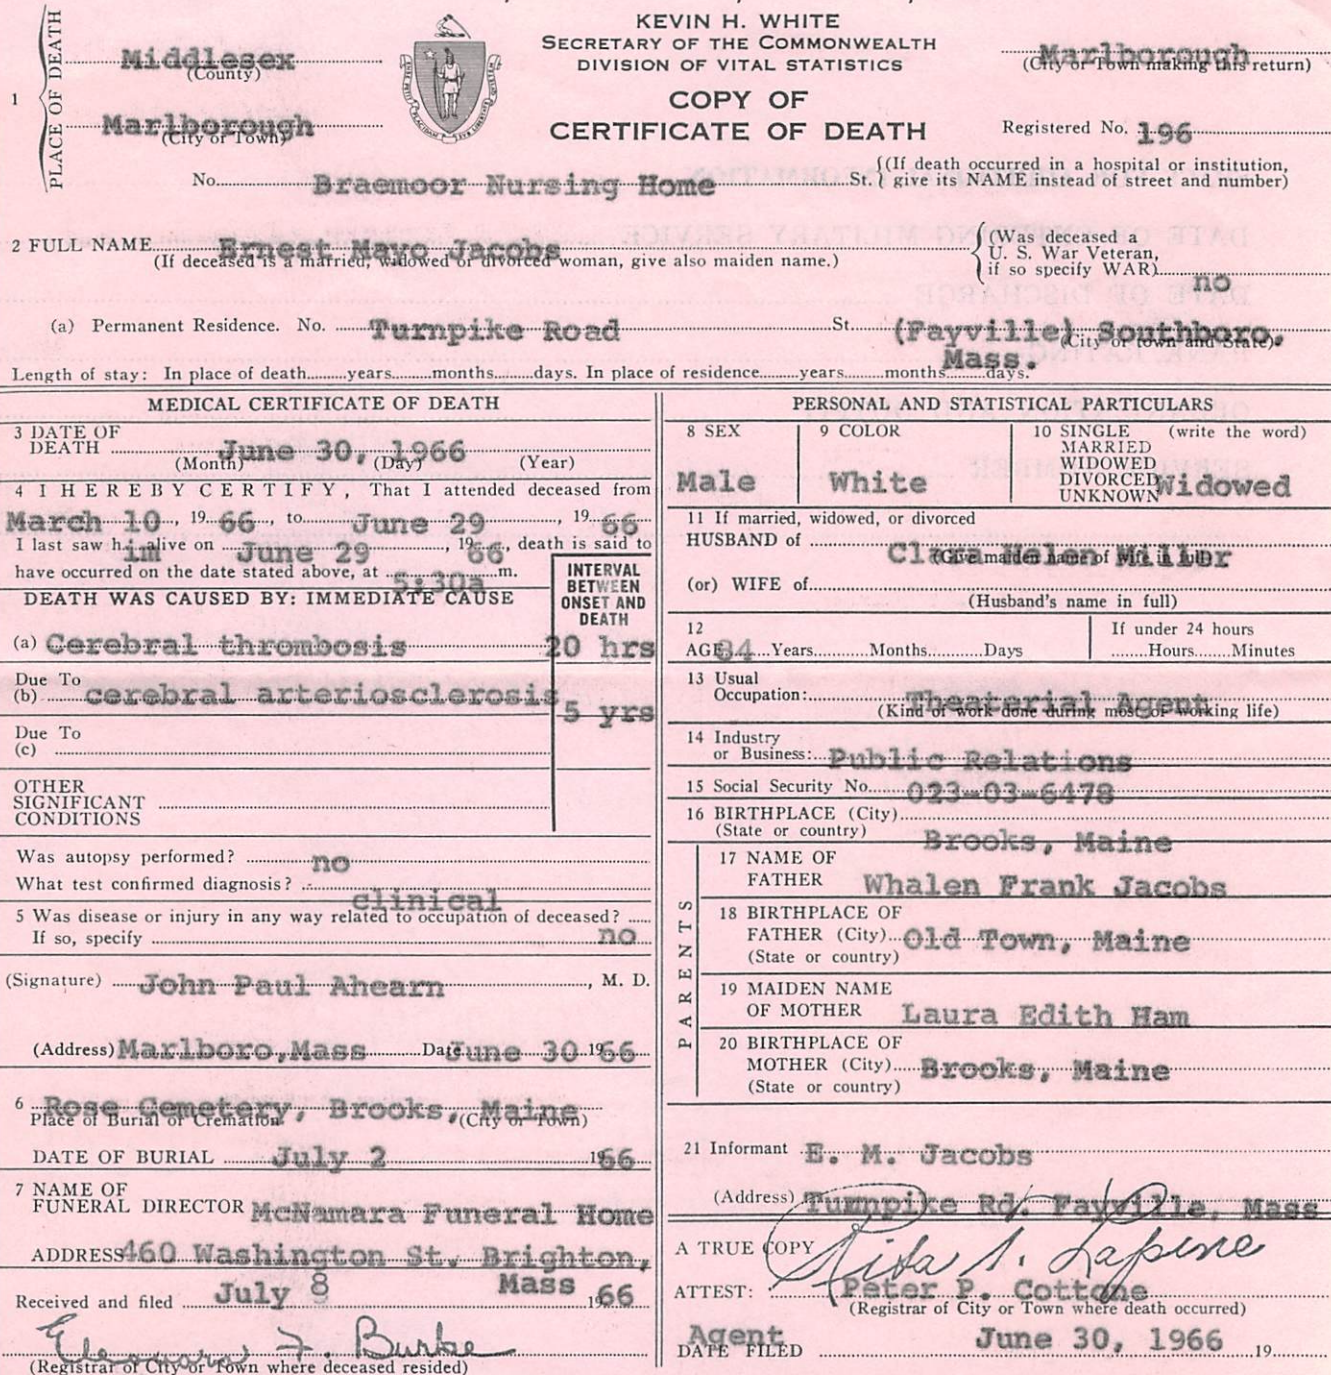 KEVIN H. WHITE
SECRETARY OF THE COMMONWEALTH
DIVISION OF VITAL STATISTICS
COPY OF
CERTIFICATE OF DEATH
1 PLACE OF DEATH
Middlesex
(County)
Marlborough
(City or Town)
Marlborough
(City or Town making this return)
Registered No. 196
No. Braemoor Nursing Home St. {(If death occurred in a hospital or institution,
give its NAME instead of street and number)
2 FULL NAME Ernest Mayo Jacobs
(If deceased is a married, widowed or divorced woman, give also maiden name.)
{(Was deceased a
U. S. War Veteran,
if so specify WAR) no
(a) Permanent Residence. No. Turnpike Road St. (Fayville) Southboro,
Mass.
(City or town and State)
Length of stay: In place of death years months days. In place of residence years months days.
MEDICAL CERTIFICATE OF DEATH
3 DATE OF
DEATH June 30, 1966
(Month) (Day) (Year)
4 I HEREBY CERTIFY, That I attended deceased from
March 10, 19 66, to June 29, 19 66
I last saw h im alive on June 29, 19 66, death is said to
have occurred on the date stated above, at 5:30a m.
DEATH WAS CAUSED BY: IMMEDIATE CAUSE
INTERVAL
BETWEEN
ONSET AND
DEATH
(a) Cerebral thrombosis 20 hrs
Due To
(b) cerebral arteriosclerosis 5 yrs
Due To
(c)
OTHER
SIGNIFICANT
CONDITIONS
Was autopsy performed? no
What test confirmed diagnosis? clinical
5 Was disease or injury in any way related to occupation of deceased?
If so, specify no
(Signature) John Paul Ahearn, M. D.
(Address) Marlboro, Mass Date June 30 19 66
6 Rose Cemetery, Brooks, Maine
Place of Burial or Cremation. (City or Town)
DATE OF BURIAL July 2 19 66
7 NAME OF
FUNERAL DIRECTOR McNamara Funeral Home
ADDRESS 460 Washington St. Brighton,
Mass
Received and filed July 8 19 66
Eleanora F. Burke
(Registrar of City or Town where deceased resided)
PERSONAL AND STATISTICAL PARTICULARS
8 SEX
Male
9 COLOR
White
10 SINGLE (write the word)
MARRIED
WIDOWED
DIVORCED
UNKNOWN Widowed
11 If married, widowed, or divorced
HUSBAND of Clara Helen Miller
(Give maiden name of wife in full)
(or) WIFE of
(Husband's name in full)
12
AGE 84 Years Months Days
If under 24 hours
Hours Minutes
13 Usual
Occupation: Theaterial Agent
(Kind of work done during most of working life)
14 Industry
or Business: Public Relations
15 Social Security No. 023-03-6478
16 BIRTHPLACE (City)
(State or country) Brooks, Maine
PARENTS
17 NAME OF
FATHER Whalen Frank Jacobs
18 BIRTHPLACE OF
FATHER (City) Old Town, Maine
(State or country)
19 MAIDEN NAME
OF MOTHER Laura Edith Ham
20 BIRTHPLACE OF
MOTHER (City) Brooks, Maine
(State or country)
21 Informant E. M. Jacobs
(Address) Turnpike Rd. Fayville, Mass
A TRUE COPY
Rita S. Lapine
ATTEST: Peter P. Cottone
(Registrar of City or Town where death occurred)
Agent
DATE FILED June 30, 1966 19